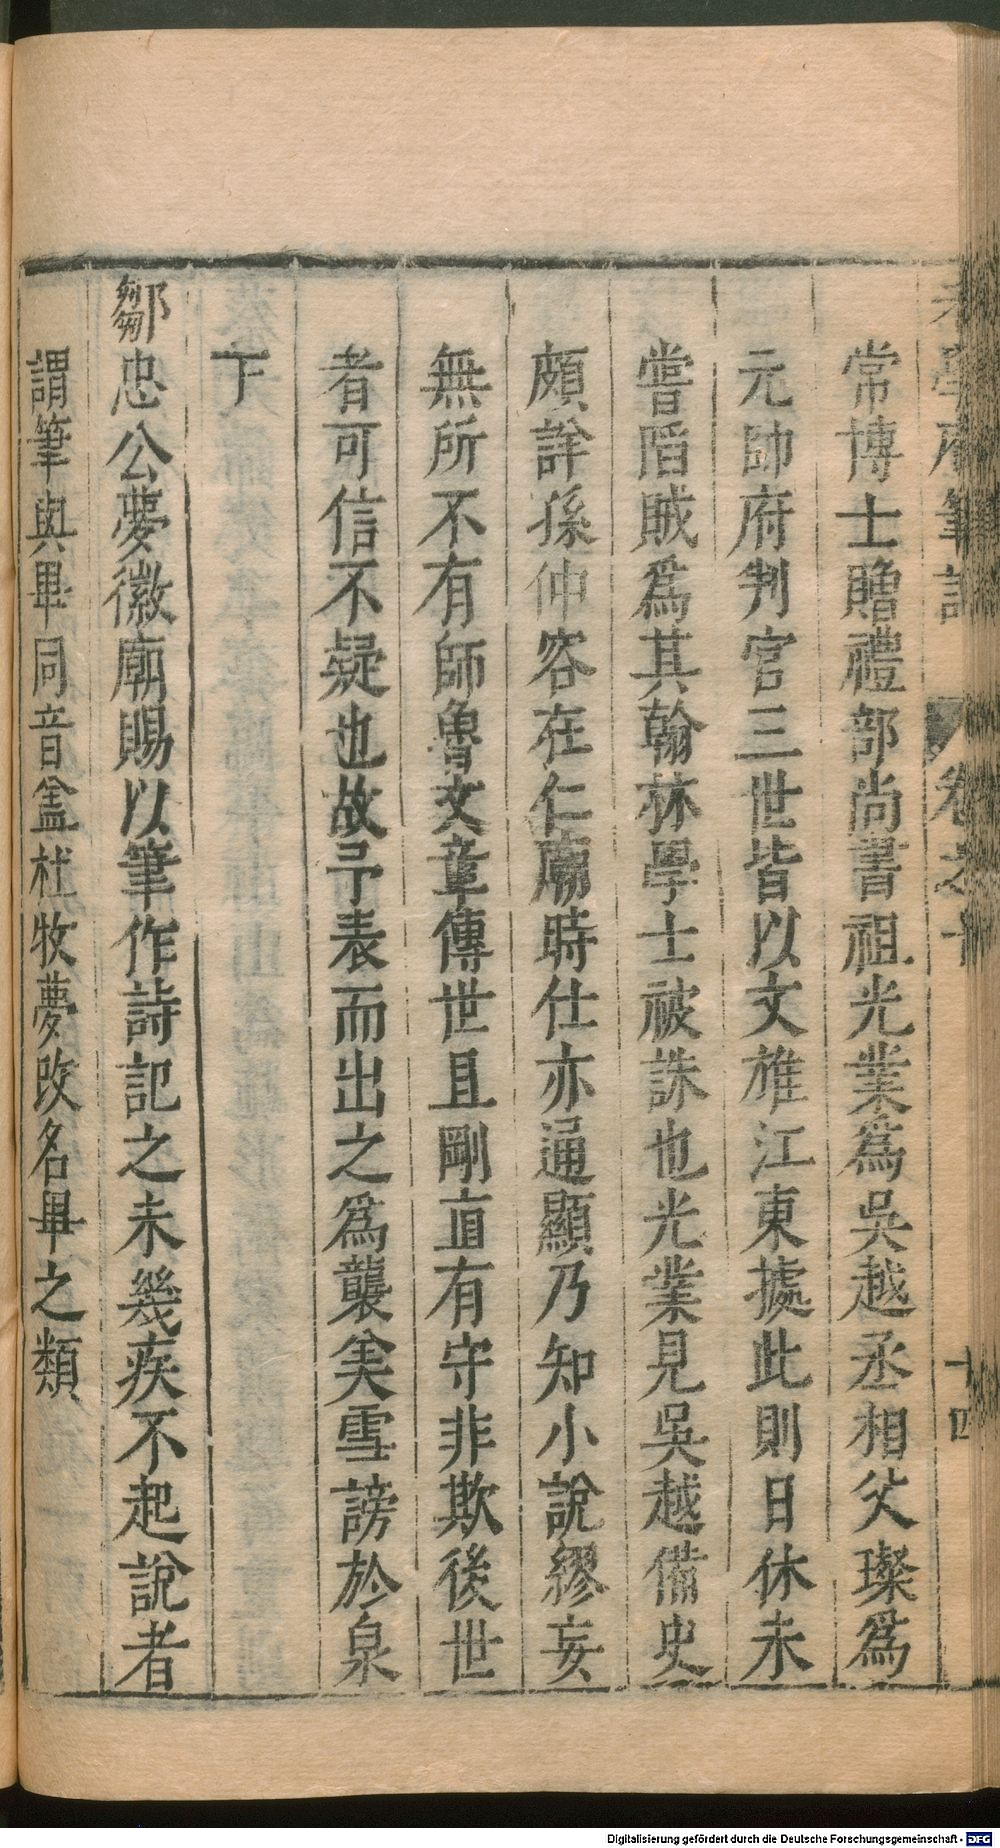 老學庵筆記 卷之十 十四
常博士贈禮部尚書祖光業爲吳越丞相父璨爲
元帥府判官三世皆以文雄江東據此則日休未
嘗陷賊爲其翰林學士被誅也光業見吳越備史
頗詳孫仲容在仁廟時仕亦通顯乃知小說繆妄
無所不有師魯文章傳世且剛直有守非欺後世
者可信不疑也故予表而出之爲襲美雪謗於泉
下
鄒忠公夢徽廟賜以筆作詩記之未幾疾不起說者
謂筆與畢同音盖杜牧夢改名畢之類
Digitalisierung gefördert durch die Deutsche Forschungsgemeinschaft - DFG